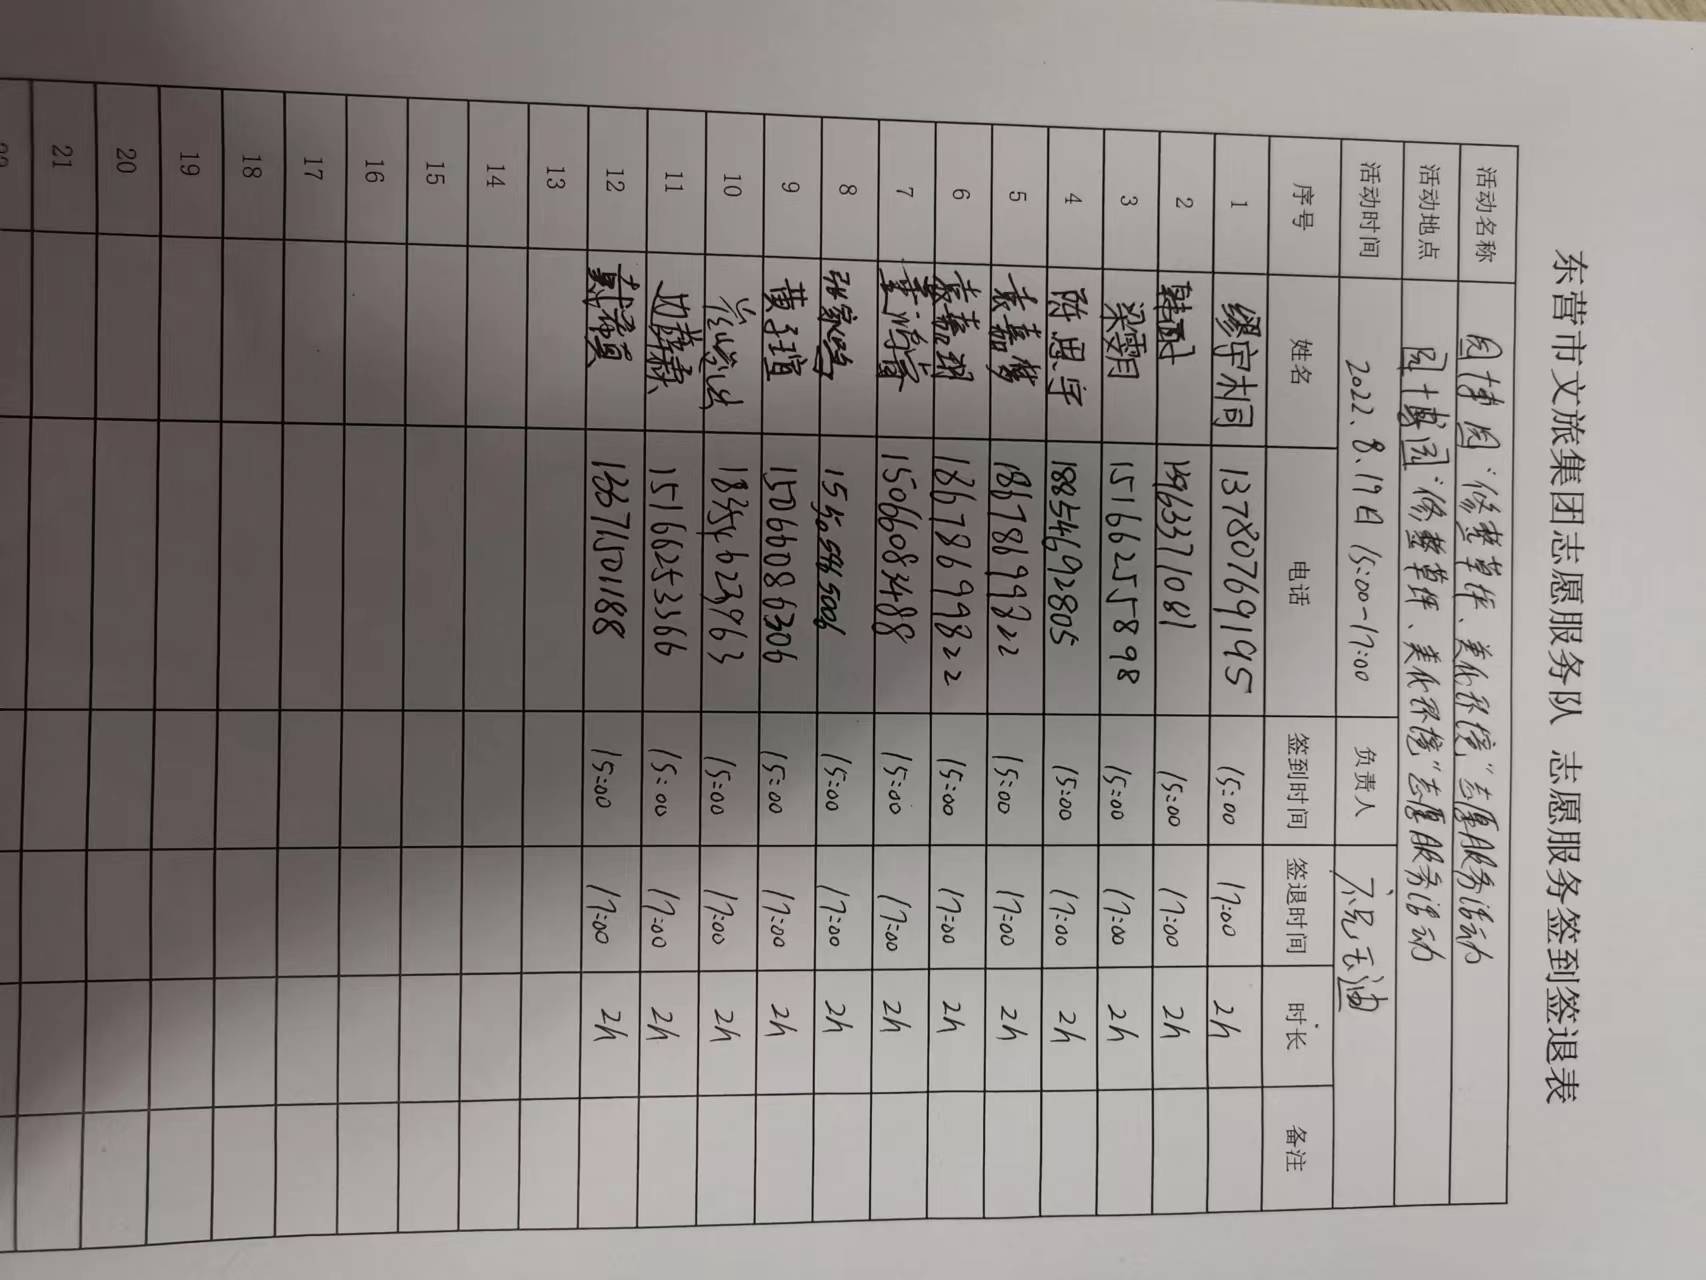 东营市文旅集团志愿服务队 志愿服务签到签退表
活动名称 园博园“修整草坪、美化环境”志愿服务活动
活动地点 园博园“修整草坪、美化环境”志愿服务活动
活动时间 2022.8.19日 15:00-17:00 负责人
序号 姓名 电话 签到时间 签退时间 时长 备注
1 缪宇桐 13780769195 15:00 17:00 2h
2 韩酎 15:00 17:00 2h
3 梁雪 15166255898 15:00 17:00 2h
4 陈思宇 18854692805 15:00 17:00 2h
5 袁嘉梦 18678699822 15:00 17:00 2h
6 袁嘉翊 18678699822 15:00 17:00 2h
7 15066083488 15:00 17:00 2h
8 张家鸣 15:00 17:00 2h
9 黄子瑄 15066086306 15:00 17:00 2h
10 15:00 17:00 2h
11 15166253366 15:00 17:00 2h
12 15:00 17:00 2h
13
14
15
16
17
18
19
20
21